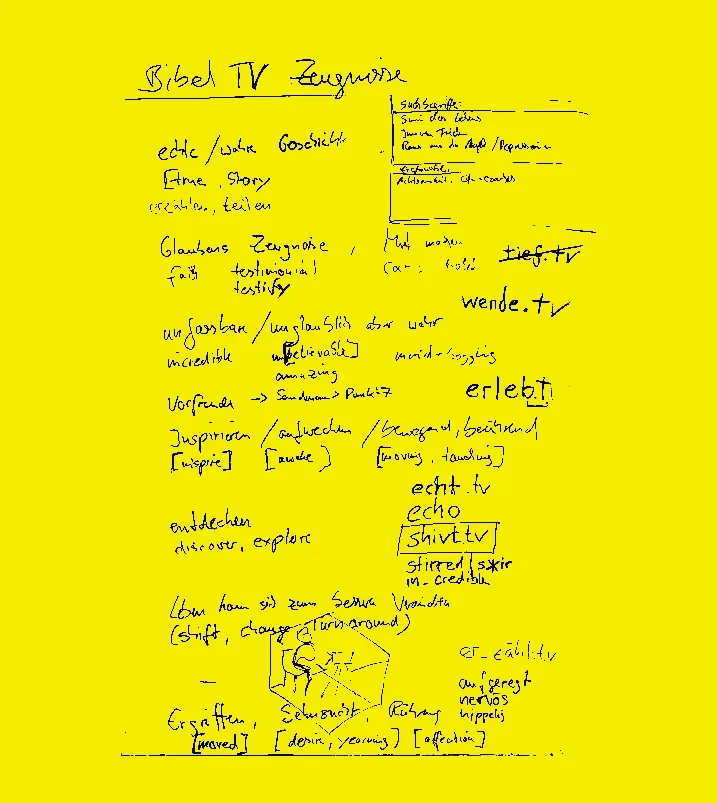 Bibel TV Zeugnisse
Suchbegriffe:
Sinn des Lebens
Raus aus der /Depression
echte / wahre Geschichte
[true, story
erzählen, teilen
Glaubens Zeugnisse, Mut machen
faith testimonial
testify
tief.tv
wende.tv
unfassbare / unglaublich aber wahr
incredible unbelievable] mind-
amazing
erlebt
Vorfreude ->
Inspirieren / aufwecken / bewegend, berührend,
[inspire] [awake) [moving, touching]
echt.tv
echo
shivt.tv
stirred
in_credible
entdecken
discover, explore
Leben kann sich zum Bessern
(shift, change, turnaround)
er_zähl.tv
aufgeregt
nervös
hippelig
Ergriffen, Sehnsucht, Rührung
[moved] [desire, yearning) [affection]